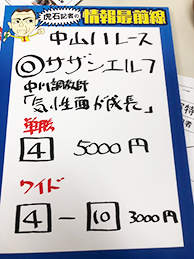 虎石記者の
情報最前線
中山11レース
◎サザンエルフ
中川調教師
「気性面が成長」
単勝
4 5000円
ワイド
4 - 10 3000円